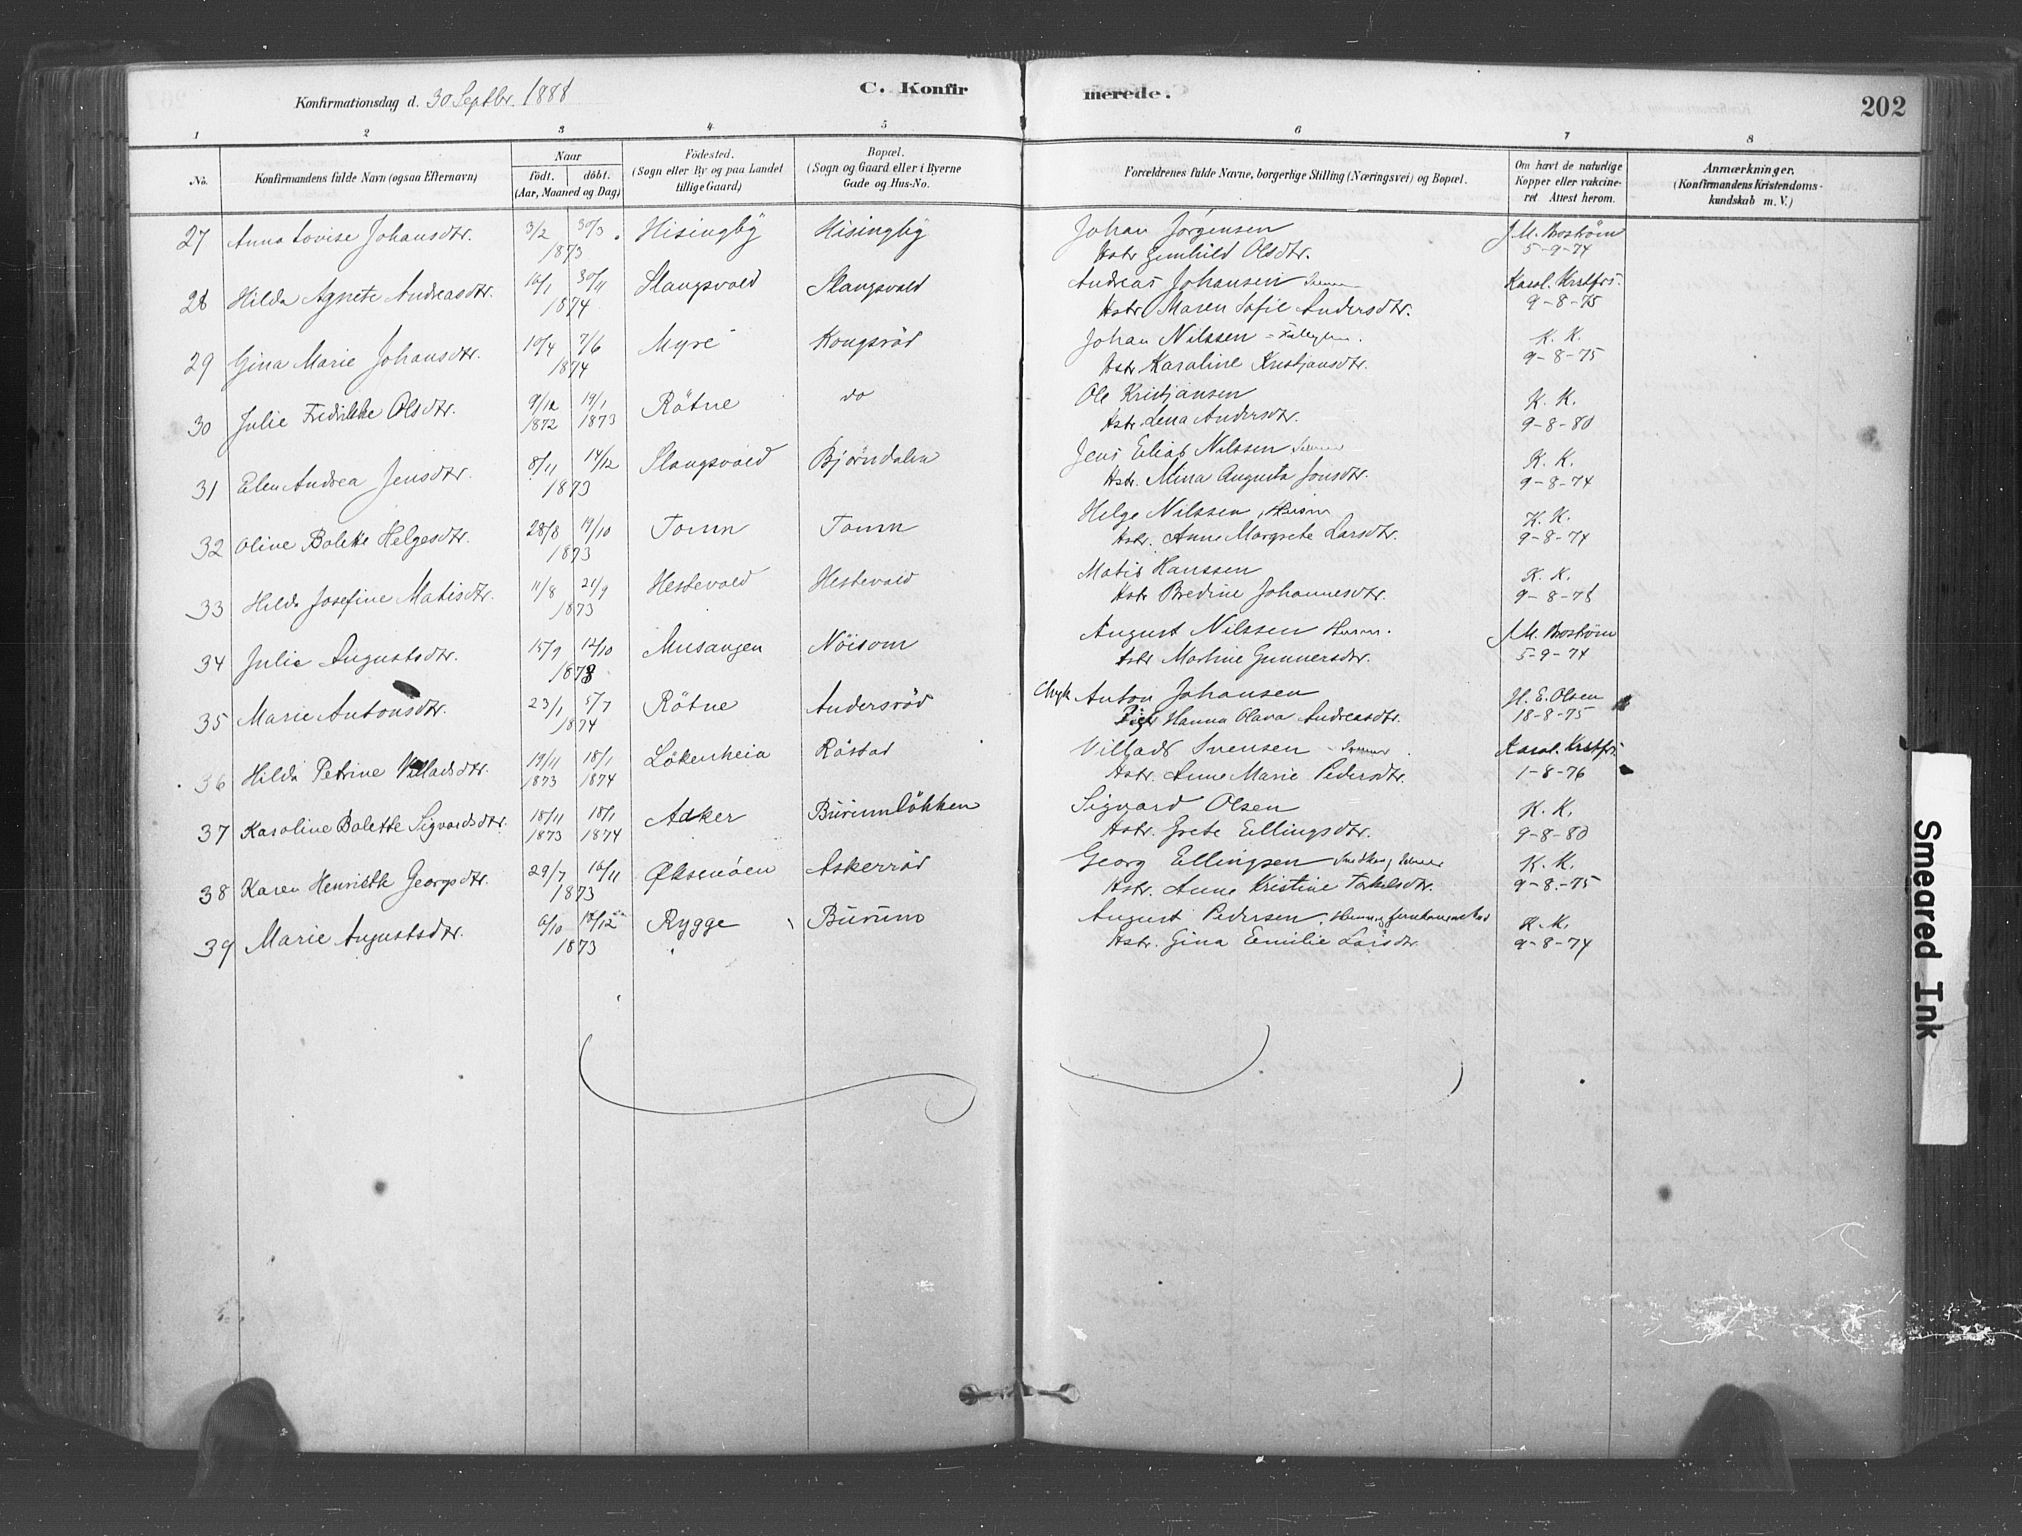 Konfirmationsdag d. 30 Septbr. 1888
C. Konfirmerede.
202
1 2 3 4 5 6 7 8
No.
Konfirmandens fulde Navn (ogsaa Efternavn)
Naar
födt. döbt.
(Aar, Maaned og Dag)
Födested.
(Sogn eller By og paa Landet
tillige Gaard)
Bopæl.
(Sogn og Gaard eller i Byerne
Gade og Hus-No.
Forældrenes fulde Navne, borgerlige Stilling (Næringsvei) og Bopæl.
Om havt de naturlige
Kopper eller vakcine-
ret Attest herom.
Anmærkninger.
(Konfirmandens Kristendoms-
kundskab m. V.)
27 Anna Lovise Johansdtr. 3/2 30/3 1873 Hisingby Hisingby Johan Jørgensen J. M. Boström
Hstr Gunhild Olsdtr. 5-9-74
28 Hilda Agnete Andreasdtr. 16/1 30/11 1874 Slangsvold Slangsvold Andreas Johansen Karol. Krstfrs.
Hstr Maren Sofie Andersdtr. 9-8-75
29 Gina Marie Johansdtr. 10/4 7/6 1874 Myre Kongsröd Johan Nilssen K. K.
Hstr Karoline Kristjansdtr. 9-8-75
30 Julie Fredrikke Olsdtr. 9/12 1872 19/1 1873 Rötne do Ole Kristjansen K. K.
Hstr Lena Andersdtr. 9-8-80
31 Elen Andrea Jensdtr. 8/11 14/12 1873 Slangsvold Bjørndalen Jens Elias Nilssen K. K.
Hstr. Mina Augusta Jonsdtr. 9-8-74
32 Oline Bolette Helgesdtr. 28/8 19/10 1873 Tomn Tomn Helge Nilssen K. K.
Hstr. Anne Margrete Larsdtr. 9-8-74
33 Hilda Josefine Matisdtr. 11/8 21/9 1873 Hestevold Hestevold Matis Hanssen K. K.
Hstr Bredine Johannesdtr. 9-8-78
34 Julie Augustsdtr. 15/9 12/10 1873 Musangen Nöisom August Nilssen J. M. Boström
Hstr Martine Gunnersdtr. 5-9-74
35 Marie Antonsdtr. 23/1 5/7 1874 Rötne Andersröd Anton Johansen H. E. Olsen
Pige Hanna Olava Andreasdtr. 18-8-75
36 Hilda Petrine Villadsdtr. 19/11 1873 18/1 1874 Lökenheia Röstad Villads Svensen Karol. Krstfrs.
Hstr. Anne Marie Pedersdtr. 1-8-76
37 Karoline Bolette Sigvardsdtr. 18/11 1873 18/1 1874 Asker Burumlökken Sigvard Olsen K. K.
Hstr. Grete Ellingsdtr. 9-8-80
38 Karen Henriette Georgsdtr. 29/7 16/11 1873 Øksenöen Askerröd Georg Ellingsen K. K.
Hstr. Anne Kristine Torkelsdtr. 9-8-75
39 Marie Augustsdtr. 6/10 18/12 1873 Rygge Burum August Pedersen K. K.
Hstr. Gina Emilie Larsdtr 9-8-74
Smeared Ink